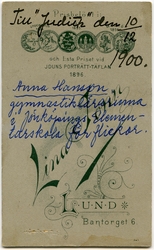 Till Judith den 10/12
1900.
och 1:sta Priset vid
IDUNS PORTRÄTT-TÄFLAN
1896
Anna Hanson
gymnastiklärarinna
i Jönköpings Elemen-
tarskola för flickor.
LUND
Bantorget 6.